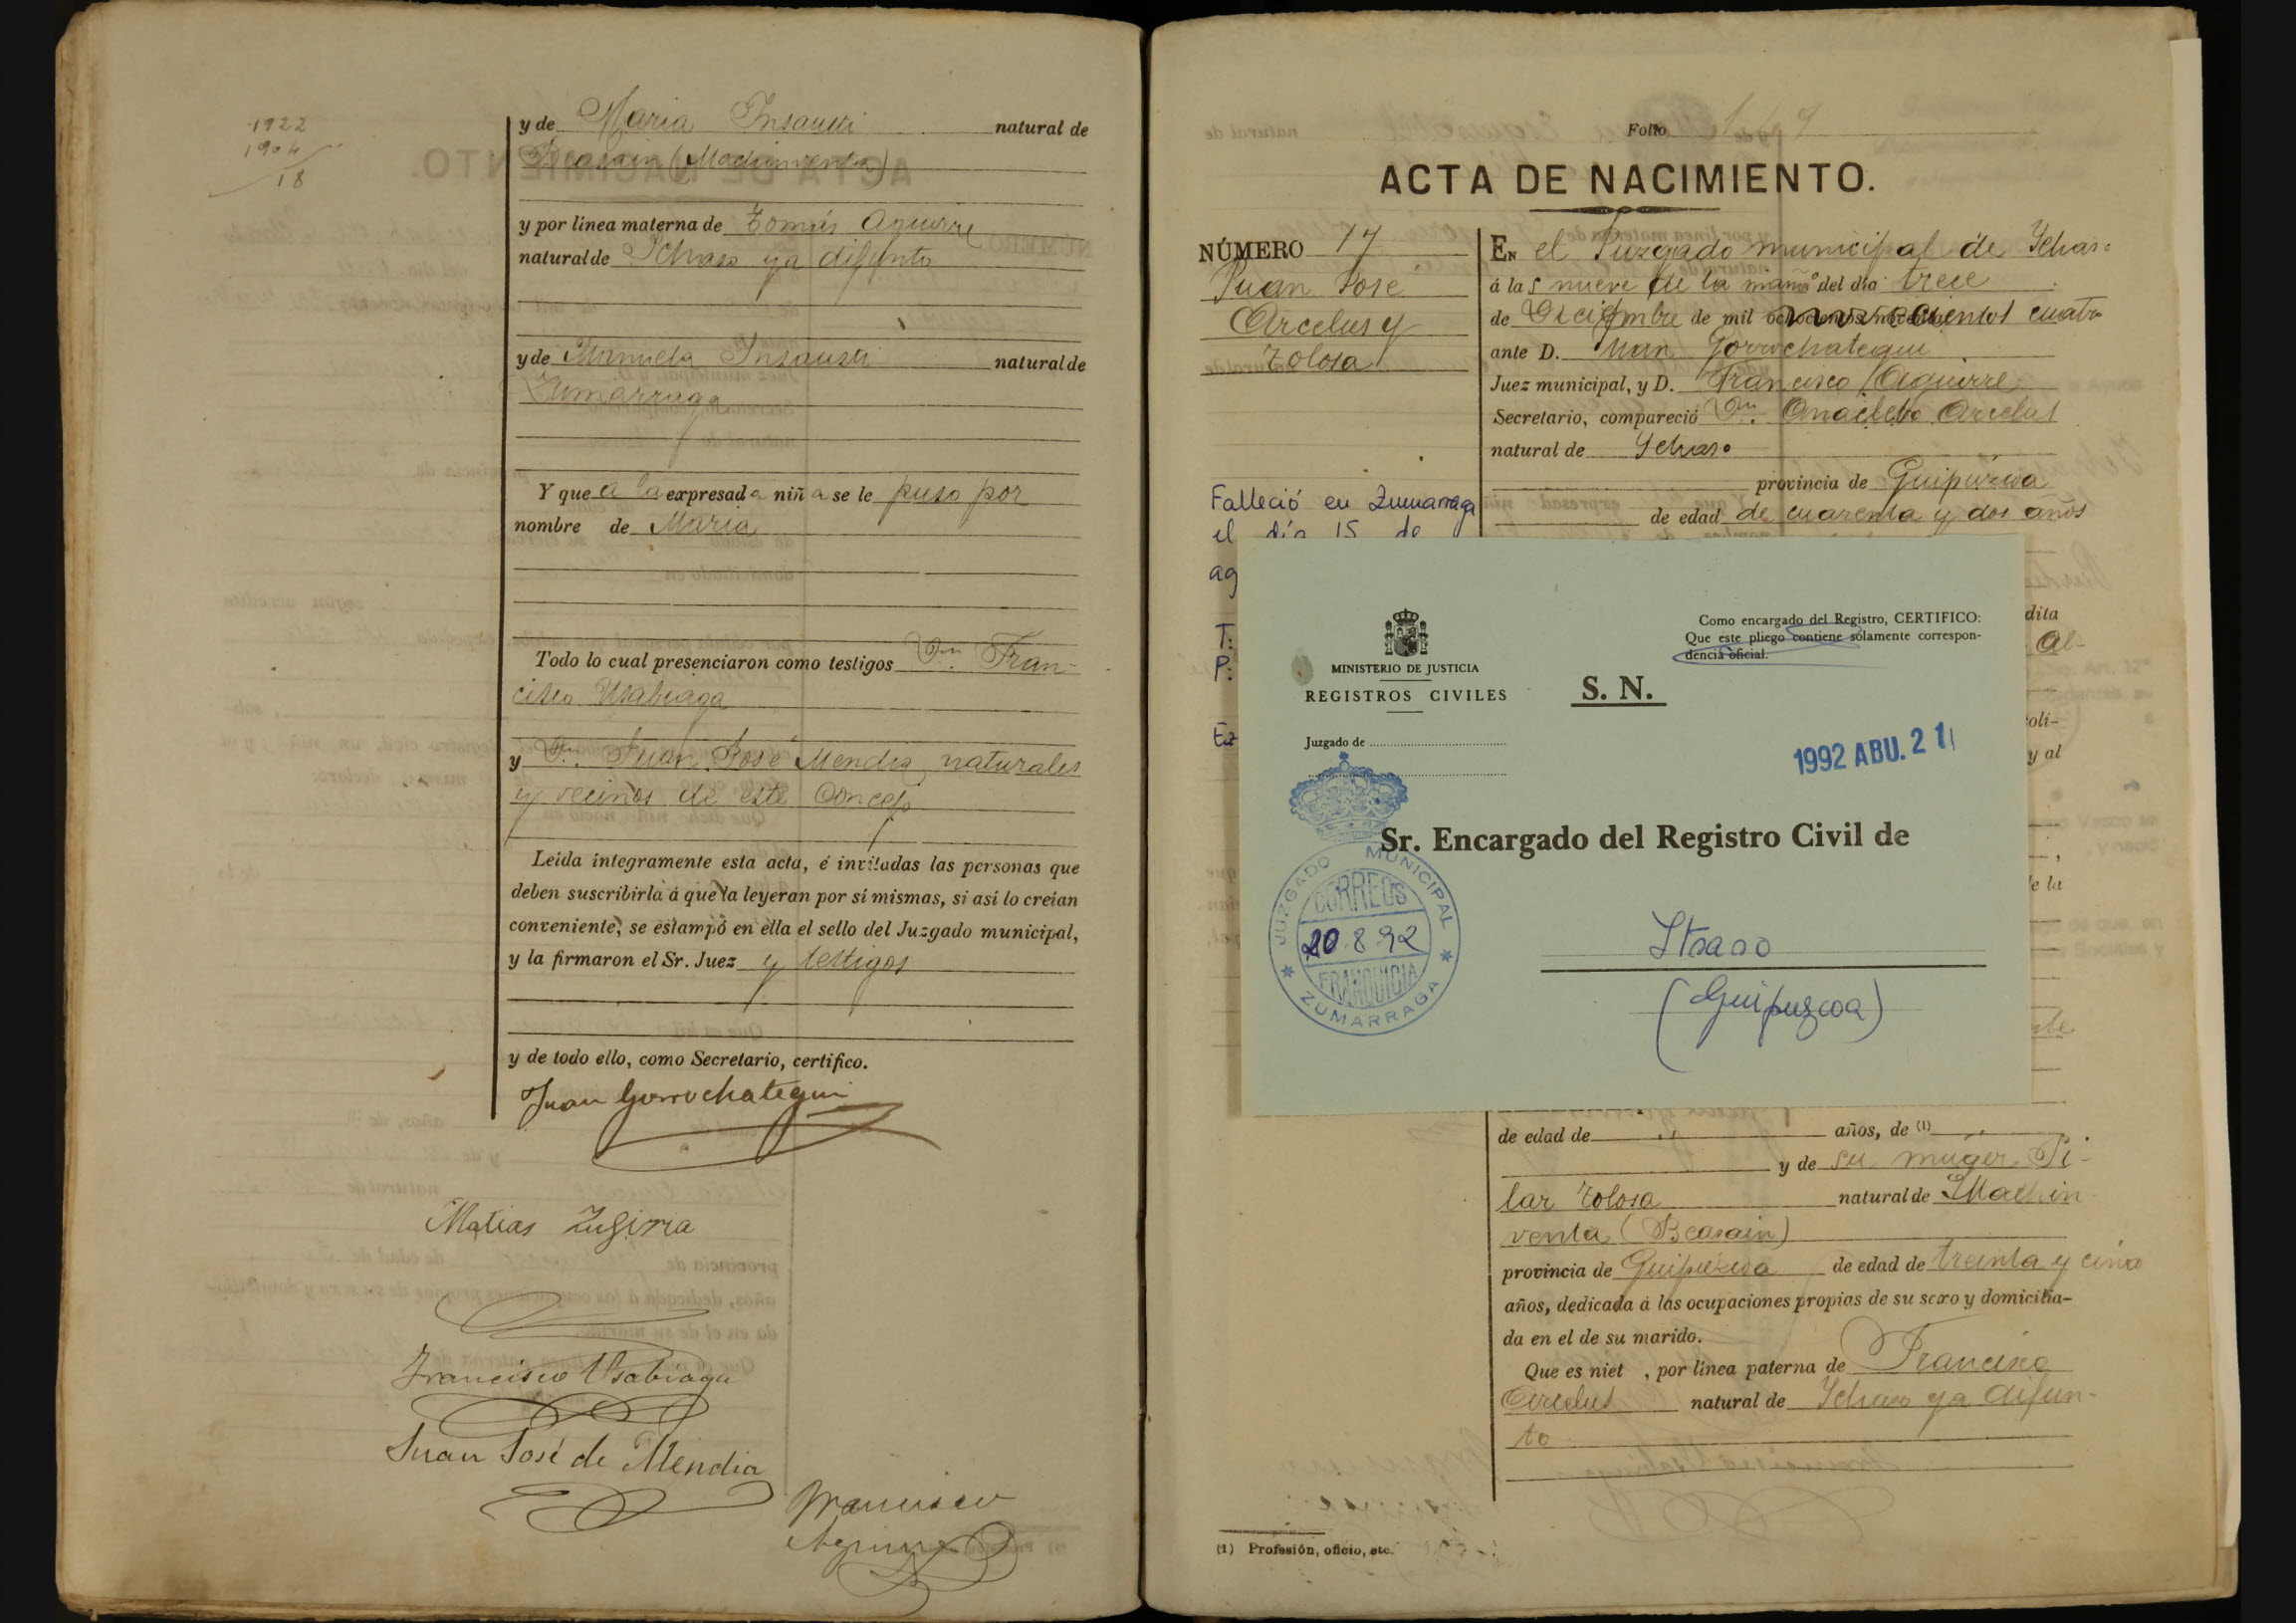 1922
1904
18
y de Maria Insausti natural de
Beasain (Machinventa)
y por línea materna de Tomás Aguirre
natural de Ychaso ya difunto
y de Manuela Insausti natural de
Zumárraga
Y que a la expresada niña se le puso por
nombre de Maria
Todo lo cual presenciaron como testigos Dn. Fran-
cisco Usabiaga
y Dn. Juan José Mendia, naturales
y vecinos de este Concejo
Leída íntegramente esta acta, é invitadas las personas que
deben suscribirla á que la leyeran por sí mismas, si así lo creían
conveniente, se estampó en ella el sello del Juzgado municipal,
y la firmaron el Sr. Juez y testigos
y de todo ello, como Secretario, certifico.
Juan Gorrochategui
Matias
Francisco Usabiaga
Juan José de Mendia
Francisco
Aguirre
Folio
ACTA DE NACIMIENTO.
NÚMERO 17
Juan José
Arcelus y
Tolosa
Falleció en Zumarraga
el día 15 de
ag
T:
P:
En el Juzgado municipal de Ychaso
á las nueve de la mañª del día trece
de Diciembre de mil novecientos cuatro
ante D. Juan Gorrochategui
Juez municipal, y D. Francisco Aguirre
Secretario, compareció Dn. Anacleto Arcelus
natural de Ychaso
provincia de Guipúzcoa
de edad de cuarenta y dos años
dita
Al-
oli-
y al
e la
MINISTERIO DE JUSTICIA
REGISTROS CIVILES
Juzgado de
Como encargado del Registro, CERTIFICO:
Que este pliego contiene solamente correspon-
dencia oficial.
S. N.
1992 ABU. 21
Sr. Encargado del Registro Civil de
Itsaso
(Guipuzcoa)
JUZGADO MUNICIPAL
CORREOS
20.8.92
FRANQUICIA
* ZUMARRAGA *
de edad de " años, de (1) "
y de su muger Pi-
lar Tolosa natural de Machin
venta (Beasain)
provincia de Guipúzcoa de edad de treinta y cinco
años, dedicada á las ocupaciones propias de su sexo y domicilia-
da en el de su marido.
Que es niet , por línea paterna de Francisco
Arcelus natural de Ychaso ya difun-
to
(1) Profesión, oficio, etc.